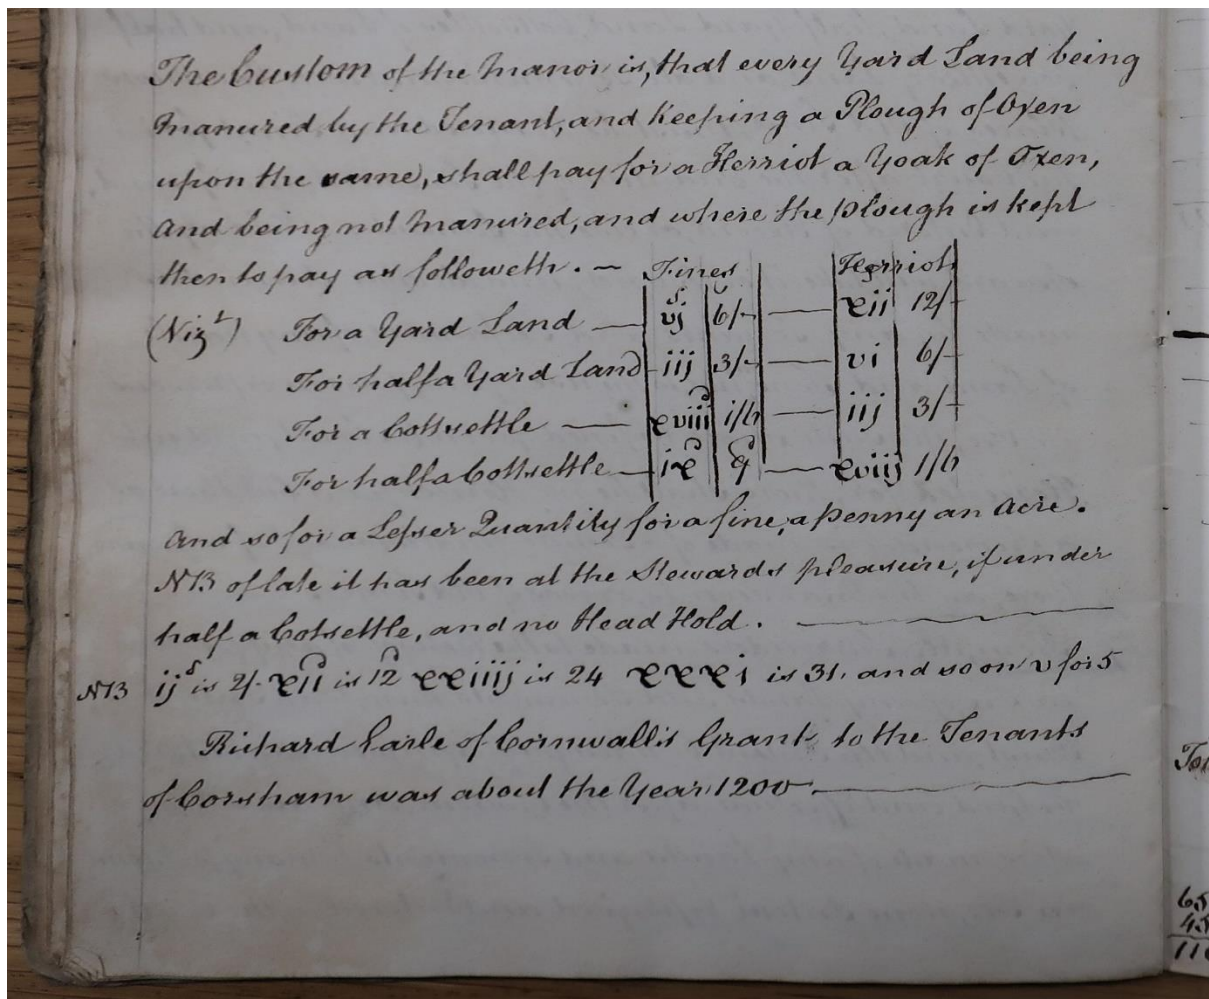 The Custom of the Manor is, that every Yard Land being
Manured by the Tenant, and Keeping a Plough of Oxen
upon the same, shall pay for a Herriot a Yoak of Oxen,
And being not Manured, and where the Plough is kept
then to pay as followeth. – Fines Herriots
(Vizt) For a Yard Land — vjs 6/- — xii 12/-
For half a Yard Land iij 3/- — vi 6/-
For a Cottsettle — xviiid i/6 — iij 3/-
For half a Cottsettle — ixd 9d — xviij 1/6
And so for a Lesser Quantity for a fine, a penny an Acre.
NB of late it has been at the Stewards pleasure, if under
half a Cotsettle, and no Head Hold. —
NB ijs is 2/- xiid is 12d xxiiij is 24 xxxi is 31, and so on v for 5
Richard Earle of Cornwall's Grant to the Tenants
of Corsham was about the Year 1200 —
65
45
110